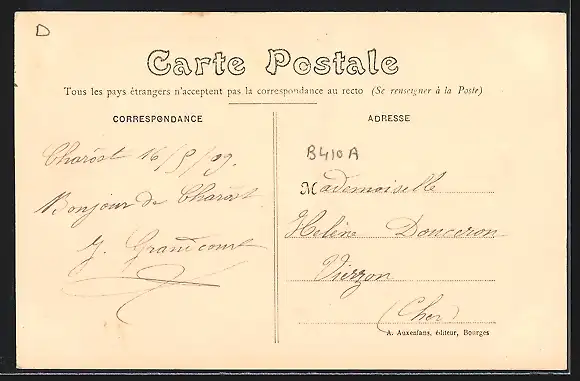 D
Carte Postale
Tous les pays étrangers n'acceptent pas la correspondance au recto (Se renseigner à la Poste)
CORRESPONDANCE
Charost 16/5/09.
Bonjour de Charost
J. Grandcourt
ADRESSE
B410A
Mademoiselle
Hélène Douceron
Vierzon
(Cher)
A. Auxenfans, éditeur, Bourges